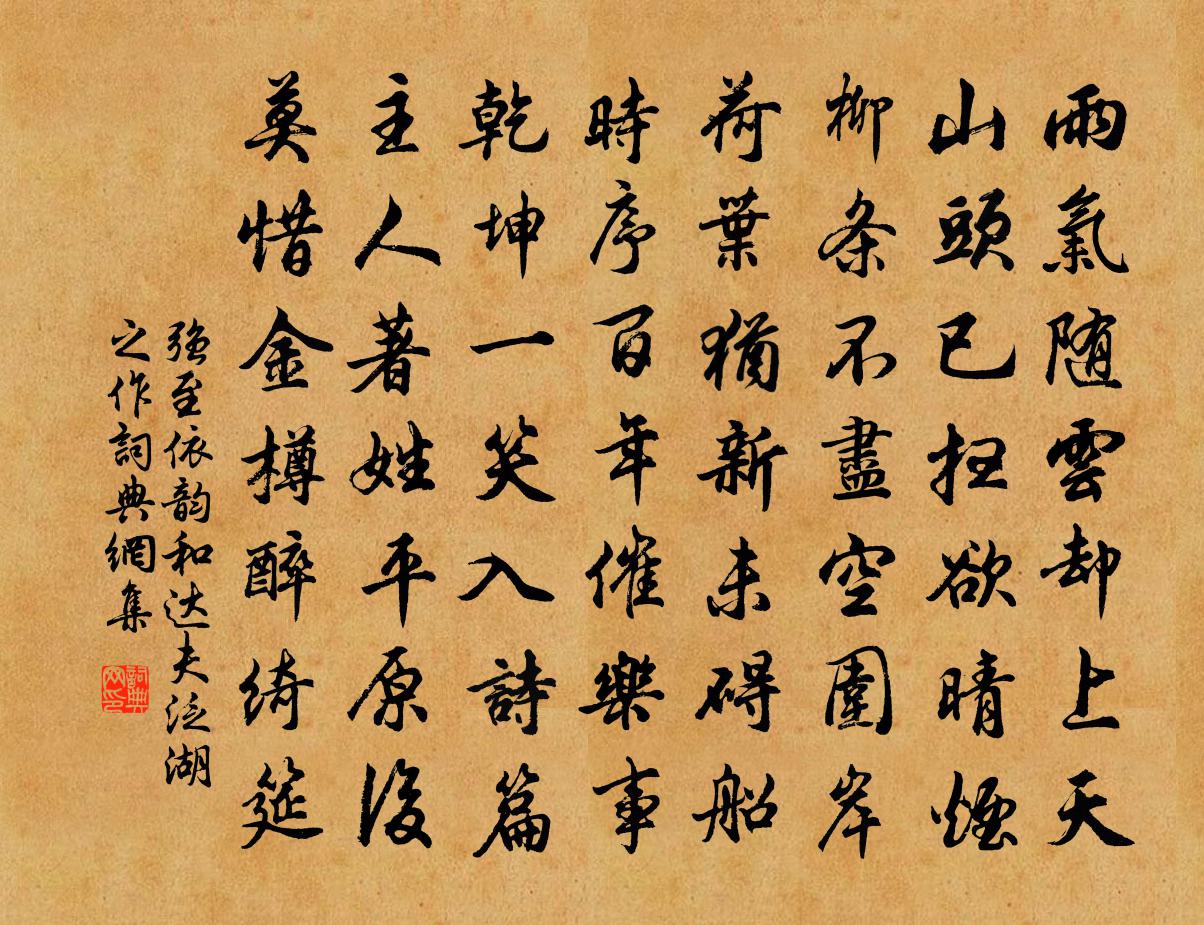 雨氣隨雲却上天
山頭已扫欲晴煙
柳条不盡空圍岸
荷葉猶新未碍船
時序百年催樂事
乾坤一笑入詩篇
主人著姓平原後
莫惜金樽醉綺筵
强至依韵和达夫泛湖
之作詞典網集
詞典網印